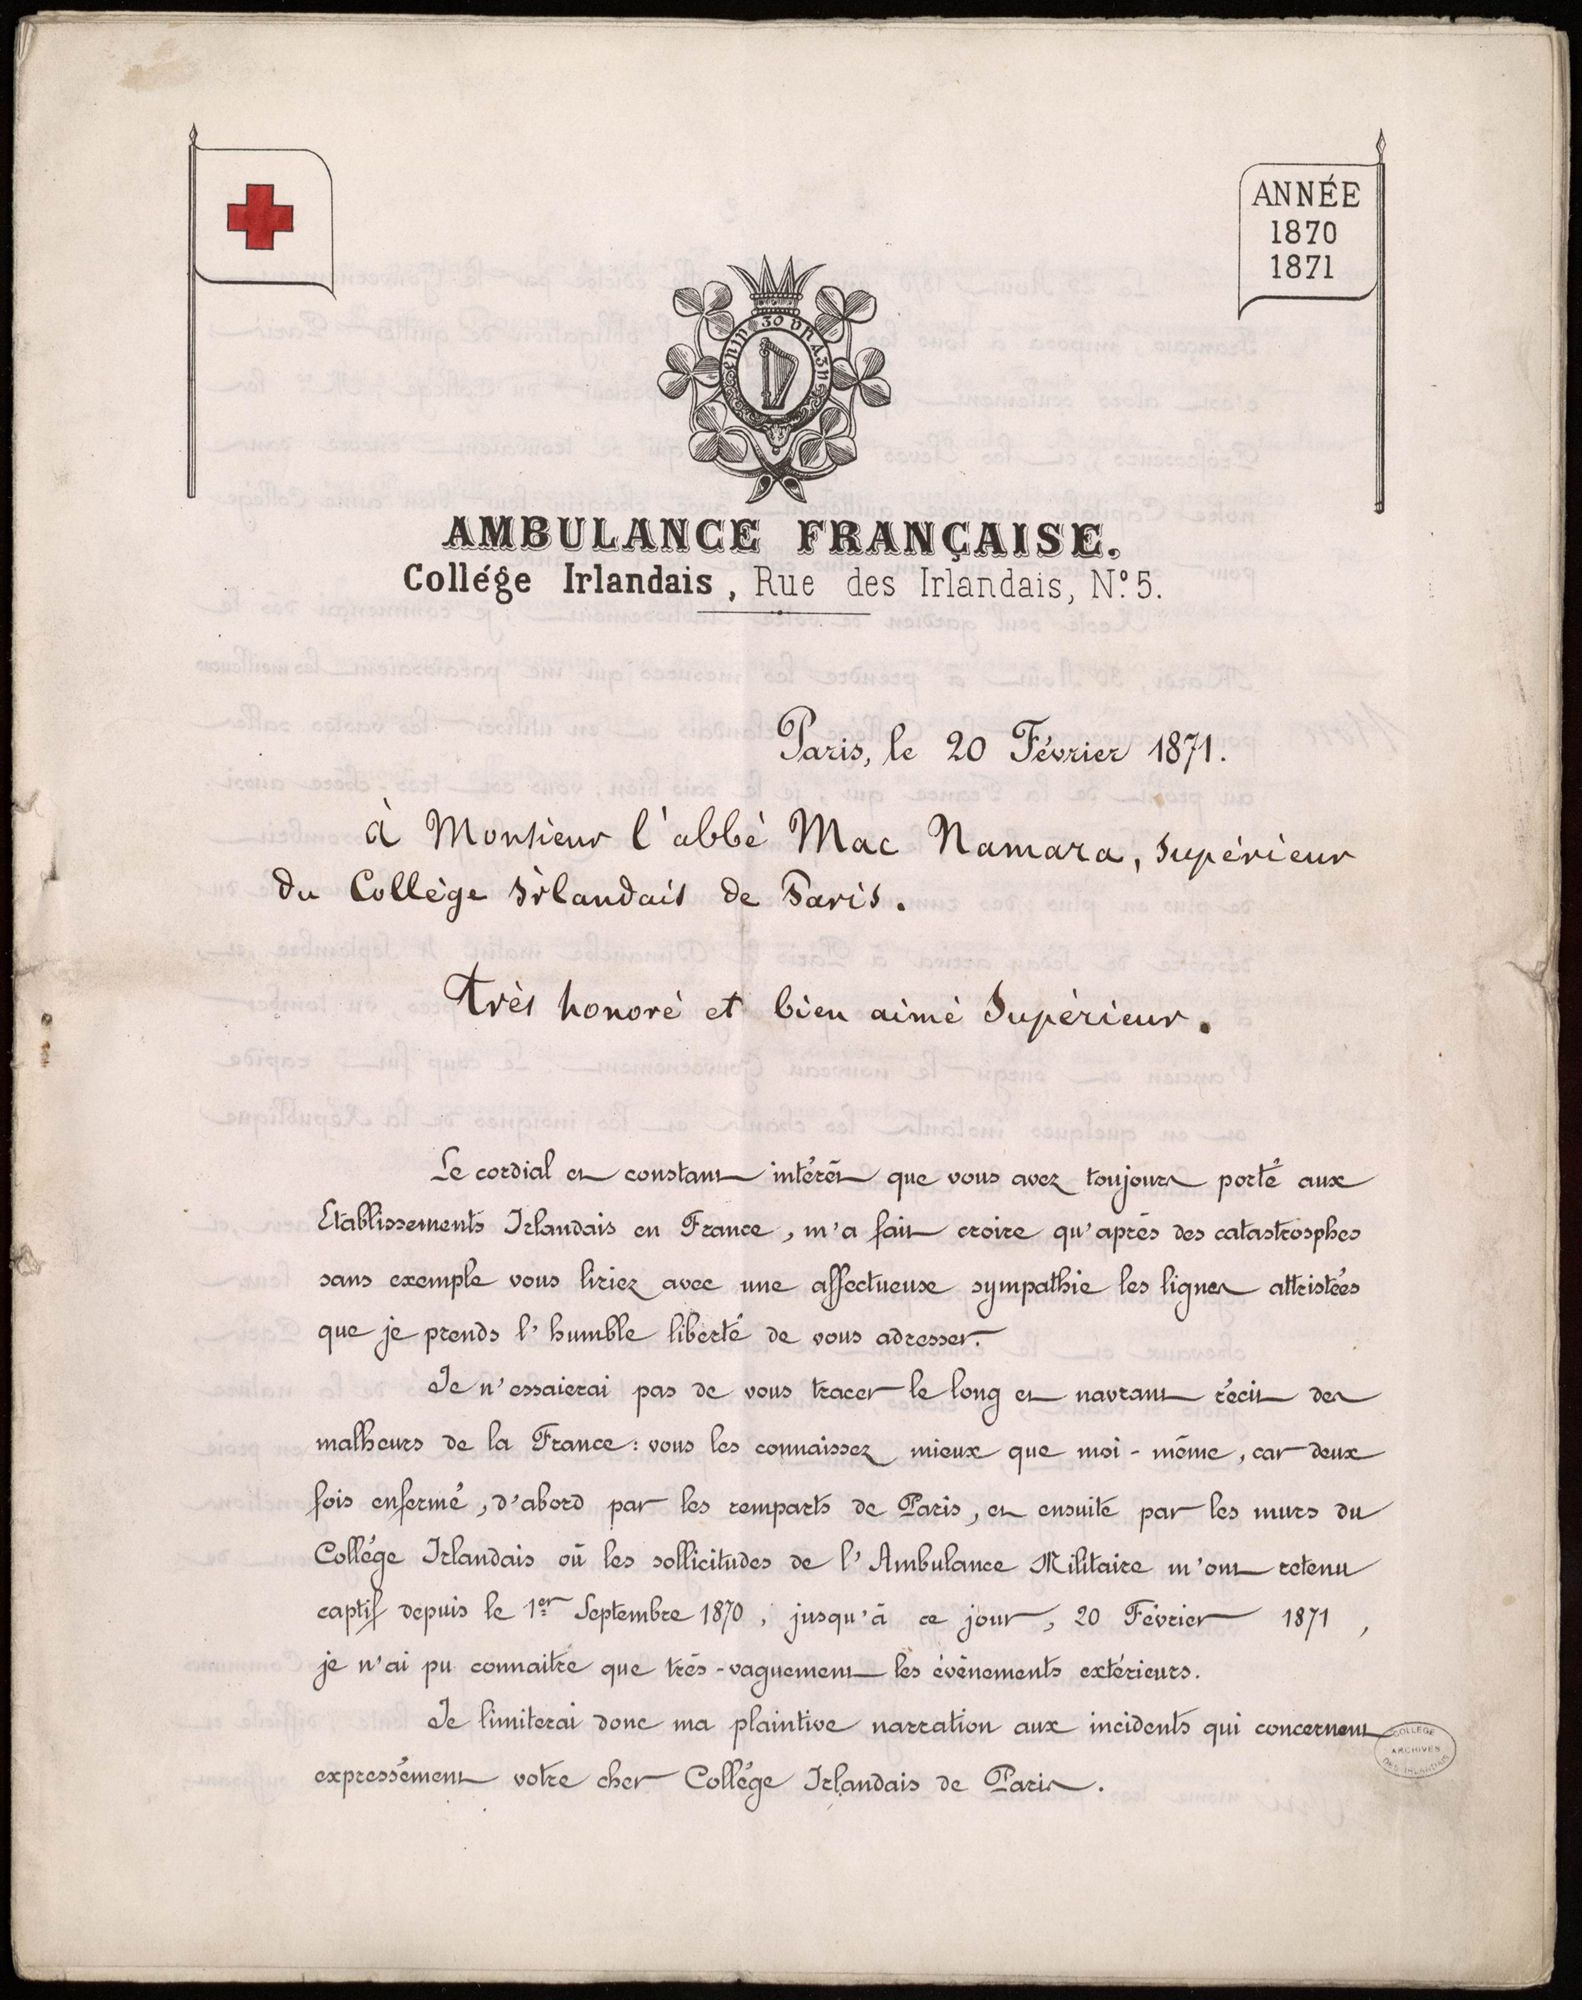 ANNÉE
1870
1871
AMBULANCE FRANÇAISE.
Collége Irlandais, Rue des Irlandais, N° 5.
Paris, le 20 Février 1871.
à Monsieur l'abbé Mac Namara, supérieur
du Collège irlandais de Paris.
Très honoré et bien aimé Supérieur.
Le cordial et constant intérêt que vous avez toujours porté aux
Etablissements Irlandais en France, m'a fait croire qu'après des catastrosphes
sans exemple vous liriez avec une affectueuse sympathie les lignes attristées
que je prends l'humble liberté de vous adresser.
Je n'essaierai pas de vous tracer le long et navrant récit des
malheurs de la France : vous les connaissez mieux que moi-même, car deux
fois enfermé, d'abord par les remparts de Paris, et ensuite par les murs du
Collége Irlandais où les sollicitudes de l'Ambulance Militaire m'ont retenu
captif depuis le 1er Septembre 1870, jusqu'à ce jour, 20 Février 1871,
je n'ai pu connaitre que très-vaguement les évènements extérieurs.
Je limiterai donc ma plaintive narration aux incidents qui concernent
expressément votre cher Collége Irlandais de Paris.
COLLEGE
ARCHIVES
DES IRLANDAIS